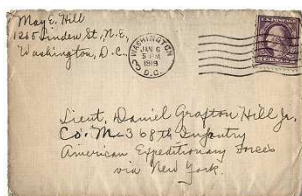 May E. Hill
1265 Linden St, N.E,
Washington, D.C.
WASHINGTON
JAN 6
5 PM
1919
D.C.
Lieut. Daniel Grafton Hill Jr.
Co. M-368th Infantry
American Expeditionary Forces
via New York.